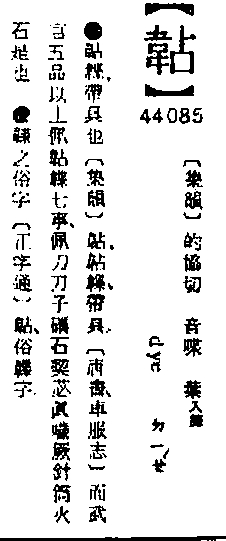 【】
44085
〔集韻〕的協切 音喋 葉入聲
dye ㄉㄧㄝˊ
●韘、帶具也〔集韻〕、韘、帶具。〔唐書車服志〕而武
官五品以上佩韘七事、佩刀刀子礪石契苾眞噦厥針筒火
石是也 ●之俗字〔正字通〕、俗字.